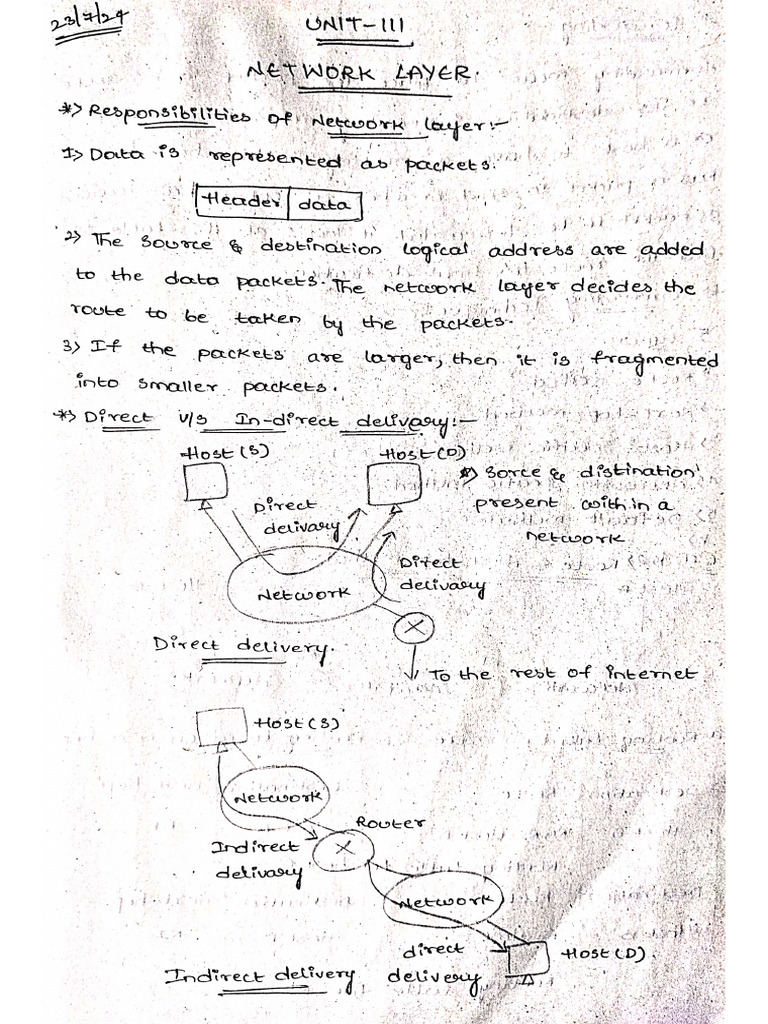 23/7/24
UNIT-III
NETWORK LAYER.
*> Responsibilities of Network layer:-
1> Data is represented as packets.
Header data
2> The source & destination logical address are added
to the data packets. The network layer decides the
route to be taken by the packets.
3> If the packets are larger, then it is fragmented
into smaller packets.
*> Direct v/s In-direct delivary:-
Host (S)
Host (D)
*> Sorce & distination
present with in a
network
Direct
delivary
Direct
delivary
Network
Direct delivery.
To the rest of internet
Host (S)
Network
Router
Indirect
delivary
Network
direct
delivery
Host (D).
Indirect delivery